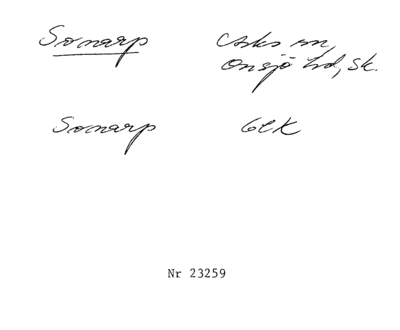 Sonarp Asks sn,
Onsjö hd, Sk.
Sonarp GEK
Nr 23259